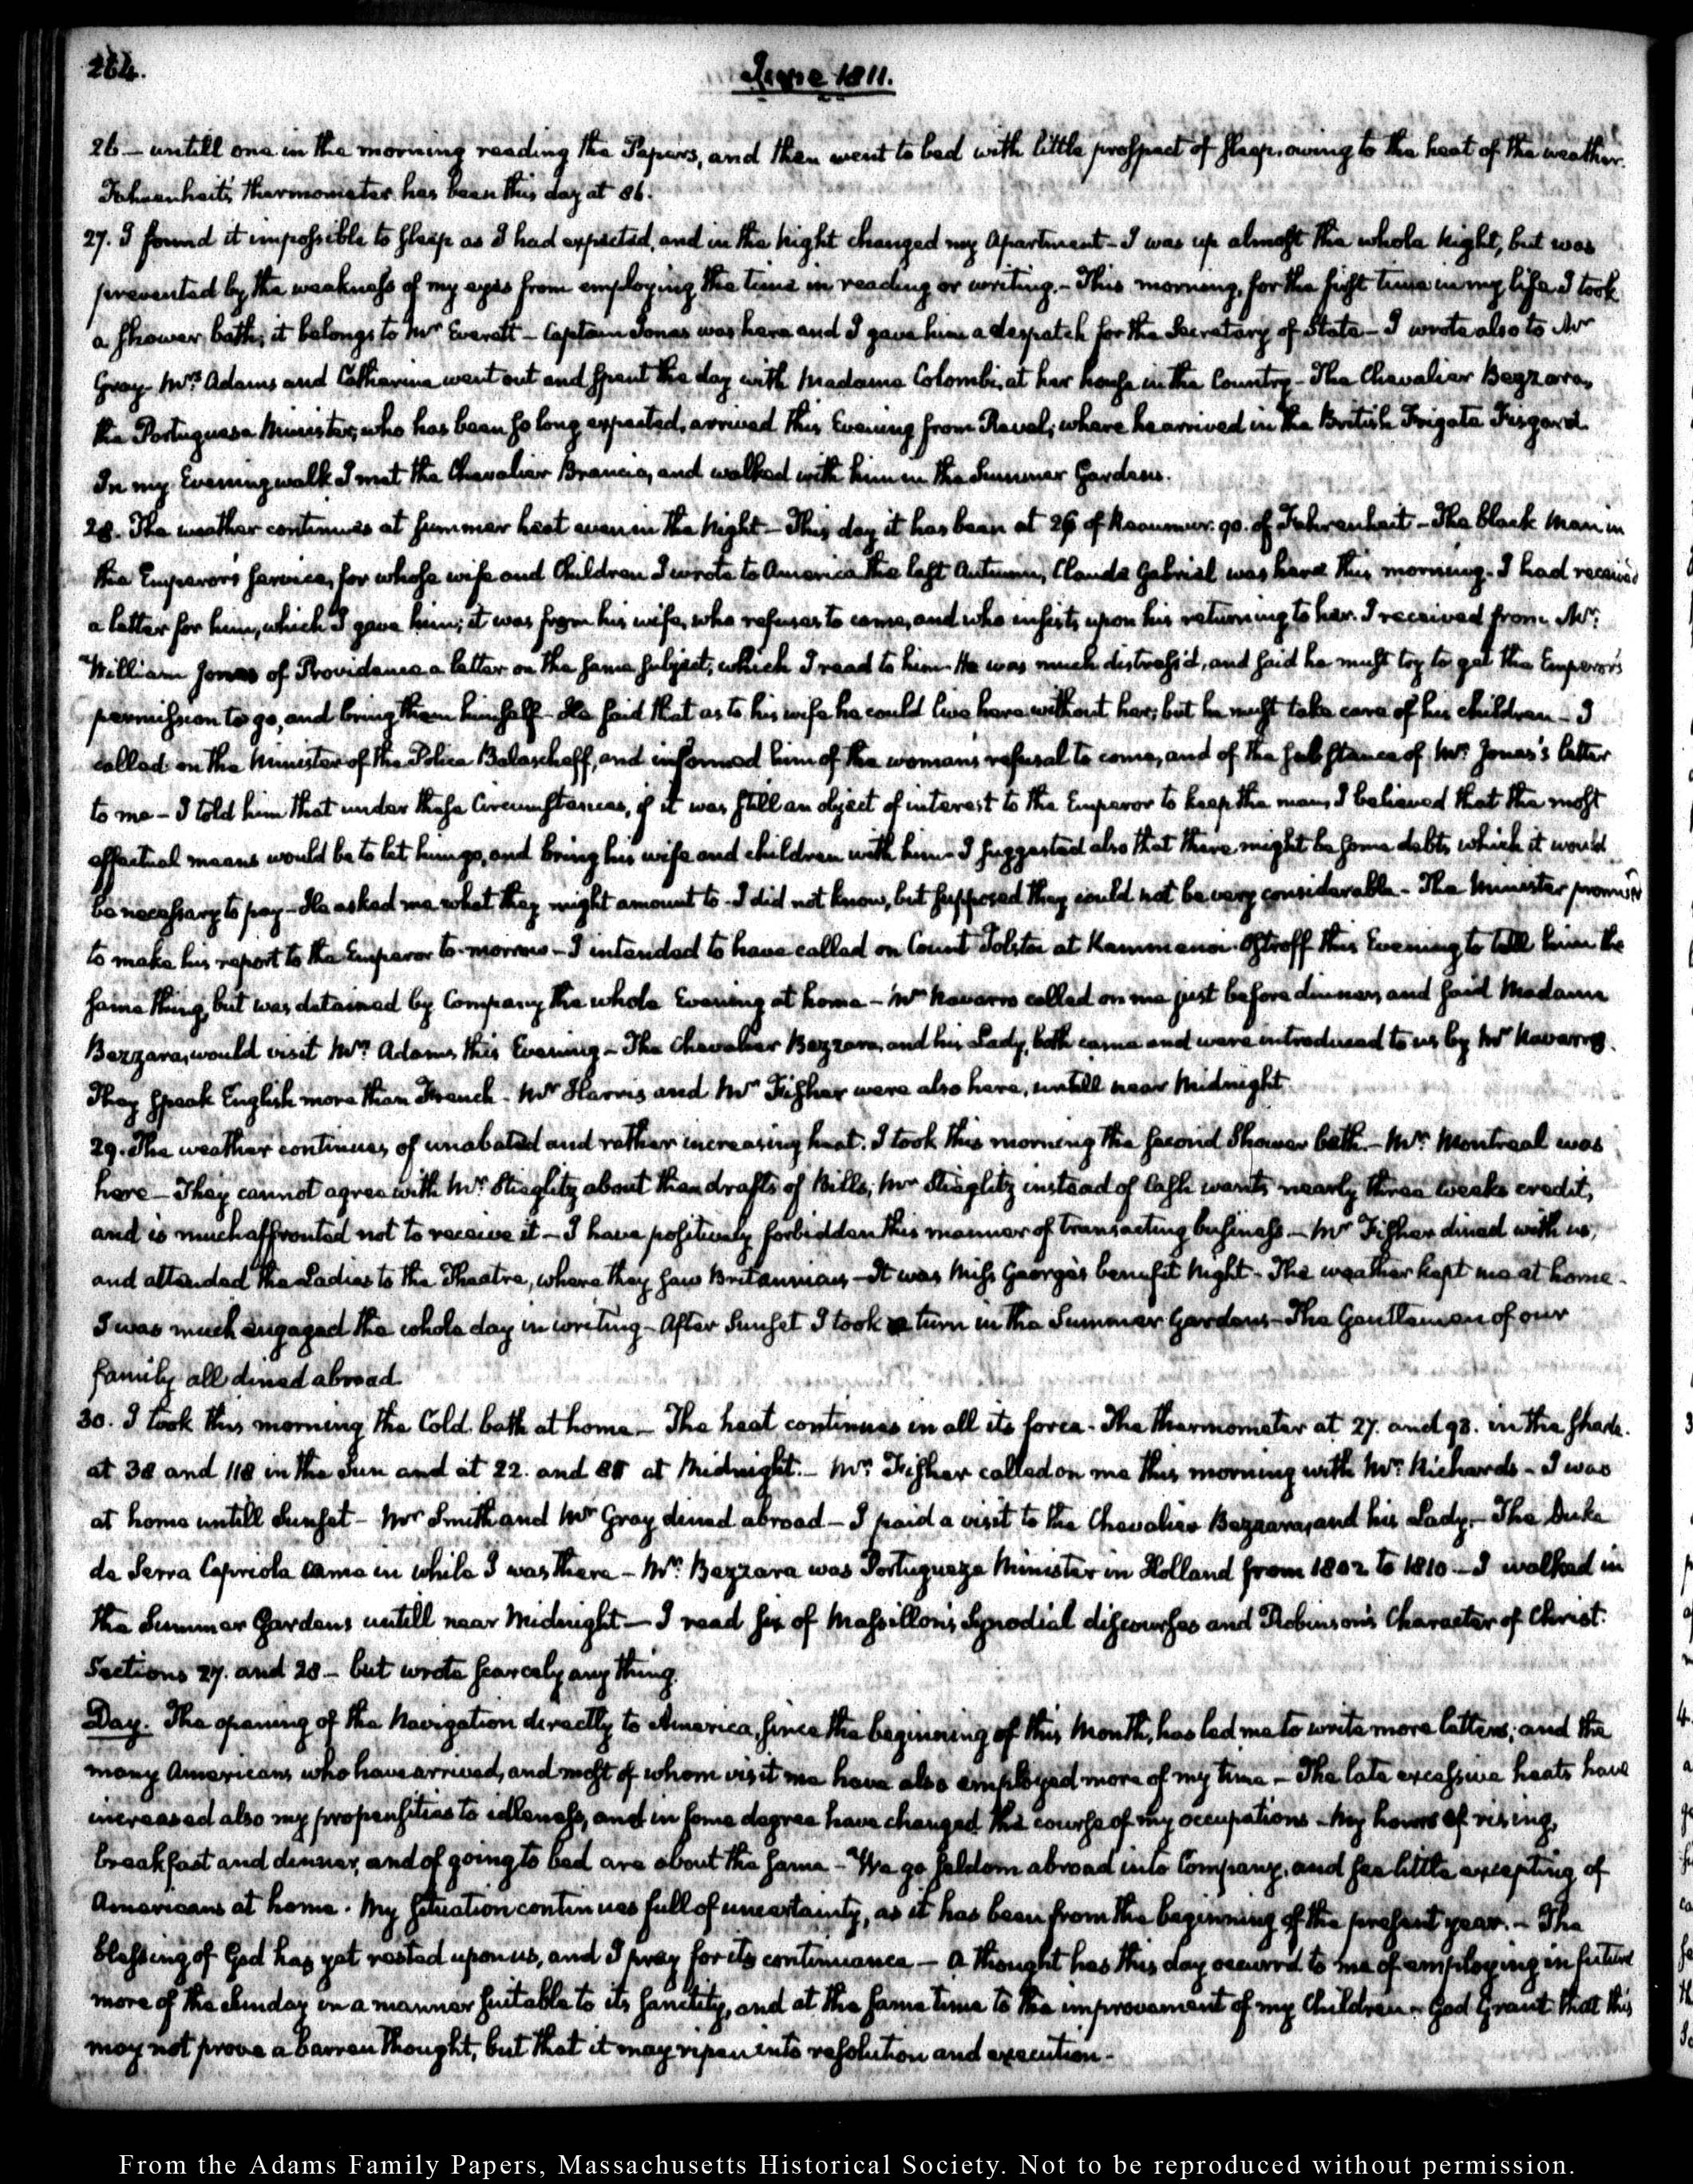 264.
June 1811.
26 — untill one in the morning reading the Papers, and then went to bed with little prospect of sleep, owing to the heat of the weather.
Fahrenheit's thermometer has been this day at 86.
27. I found it impossible to sleep as I had expected, and in the Night changed my Apartment — I was up almost the whole Night, but was
prevented by the weakness of my eyes from employing the time in reading or writing. — This morning, for the first time in my life I took
a shower bath; it belongs to Mr Everett — Captain Jones was here and I gave him a despatch for the Secretary of State — I wrote also to Mr
Gray — Mrs Adams and Catharine went out and spent the day with Madame Colombi, at her house in the Country — The Chevalier Bezzara,
the Portuguese Minister, who has been so long expected, arrived this Evening from Reval, where he arrived in the British Frigate Fisgard.
In my Evening walk I met the Chevalier Brancia, and walked with him in the Summer Gardens.
28. The weather continues at summer heat even in the Night — This day it has been at 26 of Reaumur. 90. of Fahrenheit — The black Man in
the Emperor's service, for whose wife and Children I wrote to America the last Autumn, Claude Gabriel was here this morning. I had received
a letter for him, which I gave him; it was from his wife, who refuses to come, and who insists upon his returning to her. I received from Mr:
William Jones of Providence a letter on the same subject, which I read to him. He was much distress'd, and said he must try to get the Emperor's
permission to go, and bring them himself — He said that as to his wife he could live here without her; but he must take care of his children — I
called on the Minister of the Police Balascheff, and informed him of the woman's refusal to come, and of the substance of Mr: Jones's letter
to me — I told him that under these Circumstances, if it was still an object of interest to the Emperor to keep the man, I believed that the most
effectual means would be to let him go, and bring his wife and children with him — I suggested also that there might be some debts which it would
be necessary to pay — He asked me what they might amount to. I did not know, but supposed they could not be very considerable — The Minister promised
to make his report to the Emperor to-morrow — I intended to have called on Count Tolstoi at Kammenoi-Ostroff this Evening to tell him the
same thing, but was detained by Company the whole Evening at home — Mr Navarro called on me just before dinner, and said Madame
Bezzara, would visit Mrs Adams this Evening — The Chevalier Bezzara, and his Lady, both came and were introduced to us by Mr Navarro.
They speak English more than French — Mr Harris and Mr Fisher were also here, untill near Midnight.
29. The weather continues of unabated and rather increasing heat. I took this morning the second Shower bath. — Mr: Montreal was
here — They cannot agree with Mr: Stieglitz about the drafts of Bills; Mr Stieglitz instead of Cash wants nearly three weeks credit,
and is much affronted not to receive it — I have positively forbidden this manner of transacting business — Mr Fisher dined with us,
and attended the Ladies to the Theatre, where they saw Britannicus — It was Miss George's benefit Night — The weather kept me at home —
I was much engaged the whole day in writing — After Sunset I took a turn in the Summer Gardens — The Gentlemen of our
family all dined abroad.
30. I took this morning the Cold bath at home — The heat continues in all its force. The thermometer at 27. and 93. in the shade.
at 38 and 118 in the Sun and at 22. and 81 at Midnight. — Mr: Fisher called on me this morning with Mr: Richards — I was
at home untill Sunset — Mr Smith and Mr Gray dined abroad — I paid a visit to the Chevalier Bezzara, and his Lady. — The Duke
de Serra Capriola came in while I was there — Mr: Bezzara was Portugueze Minister in Holland from 1802 to 1810 — I walked in
the Summer Gardens untill near Midnight — I read six of Massillon's Synodial discourses and Robinson's Character of Christ.
Sections 27. and 28 — but wrote scarcely any thing.
Day. The opening of the Navigation directly to America, since the beginning of this Month, has led me to write more letters; and the
many Americans who have arrived, and most of whom visit me have also employed more of my time — The late excessive heats have
increased also my propensities to idleness, and in some degree have changed the course of my occupations — My hours of rising,
breakfast and dinner, and of going to bed are about the same — We go seldom abroad into Company, and see little excepting of
Americans at home. My situation continues full of uncertainty, as it has been from the beginning of the present year. — The
blessing of God has yet rested upon us, and I pray for its continuance — A thought has this day occurr'd to me of employing in future
more of the Sunday in a manner suitable to its sanctity, and at the same time to the improvement of my Children — God Grant that this
may not prove a barren thought, but that it may ripen into resolution and execution —
From the Adams Family Papers, Massachusetts Historical Society. Not to be reproduced without permission.